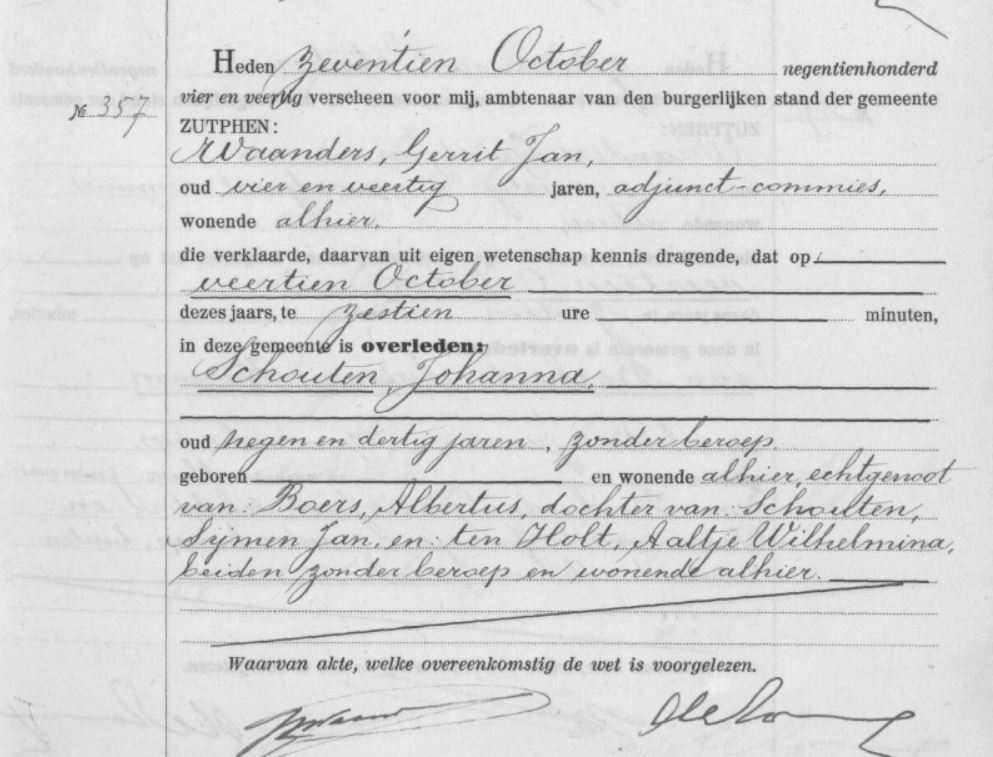 Heden zeventien October negentienhonderd
vier en veertig verscheen voor mij, ambtenaar van den burgerlijken stand der gemeente
№ 357
ZUTPHEN:
Waanders, Gerrit Jan,
oud vier en veertig jaren, adjunct-commies,
wonende alhier.
die verklaarde, daarvan uit eigen wetenschap kennis dragende, dat op
veertien October
dezes jaars, te zestien ure minuten,
in deze gemeente is overleden:
Schouten, Johanna,
oud negen en dertig jaren, zonder beroep
geboren en wonende alhier, echtgenoot
van: Boers, Albertus, dochter van: Schouten,
Sijmen Jan, en: ten Holt, Aaltje Wilhelmina,
beiden zonder beroep en wonende alhier.
Waarvan akte, welke overeenkomstig de wet is voorgelezen.